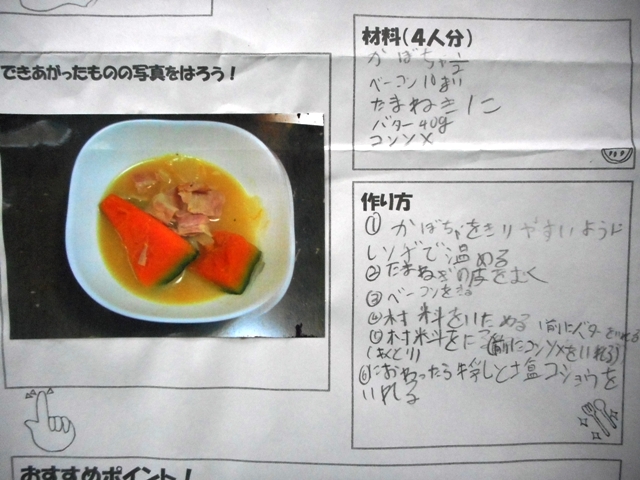 できあがったものの写真をはろう!
材料(4人分)
かぼちゃ 1/2
ベーコン10まい
たまねぎ1こ
バター40g
コンソメ
作り方
① かぼちゃをきりやすいように
レンジで温める
②たまねぎの皮をむく
③ベーコンをきる
④材料をいためる (前にバターを入れる)
⑤材料をにる (前にコンソメをいれる)
(あくとり)
⑥におわったら 塩コショウを
いれる
おすすめポイント!